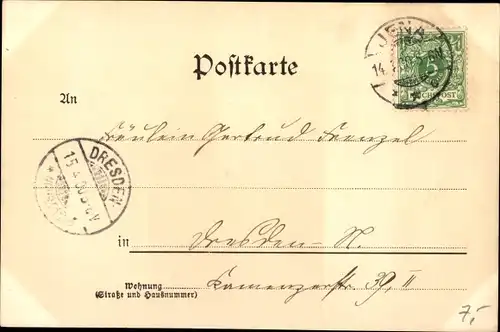 JENA
14.
5
REICHSPOST
Postkarte
An
Fräulein Gertrud Frenzel
DRESDEN
15.4.00
in Dresden-N.
Wohnung
(Straße und Hausnummer)
Kamenzerstr. 39, II
7,-